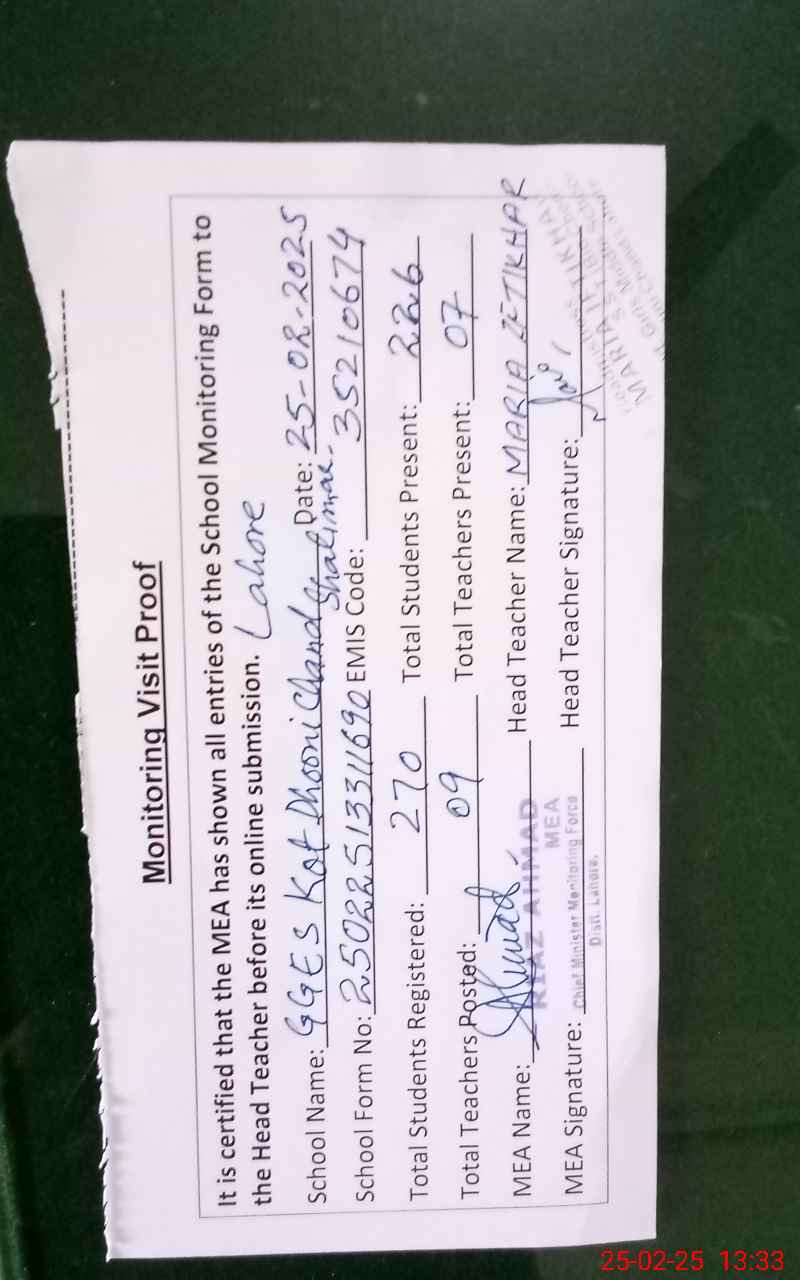 Monitoring Visit Proof
It is certified that the MEA has shown all entries of the School Monitoring Form to
the Head Teacher before its online submission. Lahore
School Name: GGES Kot Dhooni Chand Date: 25-02-2025
Shalimar.
School Form No: 25022513311690 EMIS Code: 35210674
Total Students Registered: 270 Total Students Present: 226
Total Teachers Posted: 09 Total Teachers Present: 07
MEA Name: Head Teacher Name: MARIA IFTIKHAR
RIAZ AHMAD
MEA
MEA Signature: Head Teacher Signature:
Chief Minister Monitoring Force
Distt. Lahore.
25-02-25 13:33